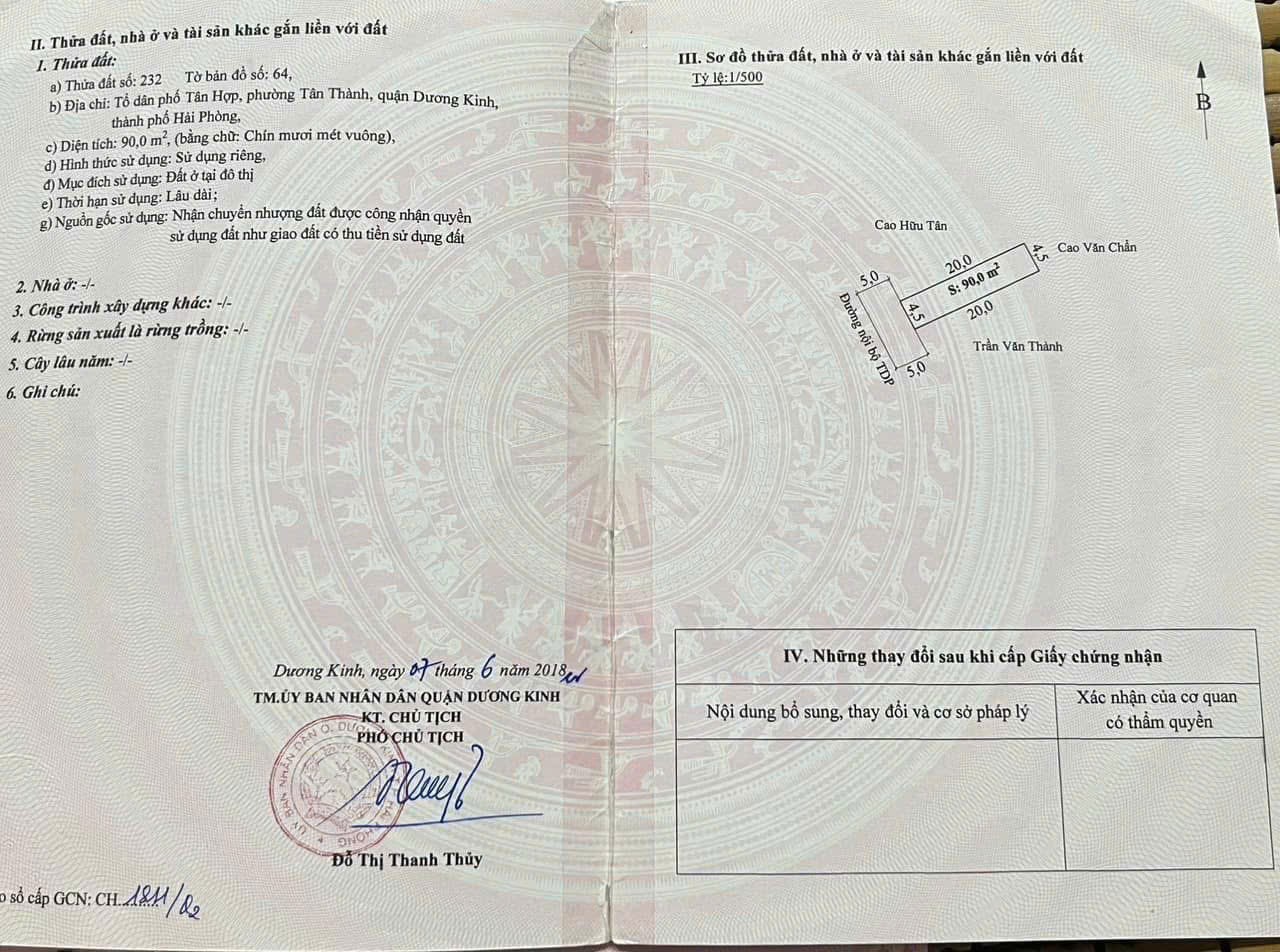 II. Thửa đất, nhà ở và tài sản khác gắn liền với đất
1. Thửa đất:
a) Thửa đất số: 232 Tờ bản đồ số: 64,
b) Địa chỉ: Tổ dân phố Tân Hợp, phường Tân Thành, quận Dương Kinh,
thành phố Hải Phòng,
c) Diện tích: 90,0 m², (bằng chữ: Chín mươi mét vuông),
d) Hình thức sử dụng: Sử dụng riêng,
đ) Mục đích sử dụng: Đất ở tại đô thị
e) Thời hạn sử dụng: Lâu dài;
g) Nguồn gốc sử dụng: Nhận chuyển nhượng đất được công nhận quyền
sử dụng đất như giao đất có thu tiền sử dụng đất
2. Nhà ở: -/-
3. Công trình xây dựng khác: -/-
4. Rừng sản xuất là rừng trồng: -/-
5. Cây lâu năm: -/-
6. Ghi chú:
Dương Kinh, ngày 07 tháng 6 năm 2018
TM.ỦY BAN NHÂN DÂN QUẬN DƯƠNG KINH
KT. CHỦ TỊCH
PHÓ CHỦ TỊCH
Đỗ Thị Thanh Thủy
sổ cấp GCN: CH
III. Sơ đồ thửa đất, nhà ở và tài sản khác gắn liền với đất
Tỷ lệ:1/500
B
Cao Hữu Tân
Cao Văn Chẩn
20,0
4,5
S: 90,0 m²
5,0
4,5
20,0
Đường nội bộ TDP
Trần Văn Thành
5,0
IV. Những thay đổi sau khi cấp Giấy chứng nhận
Nội dung bổ sung, thay đổi và cơ sở pháp lý
Xác nhận của cơ quan
có thẩm quyền